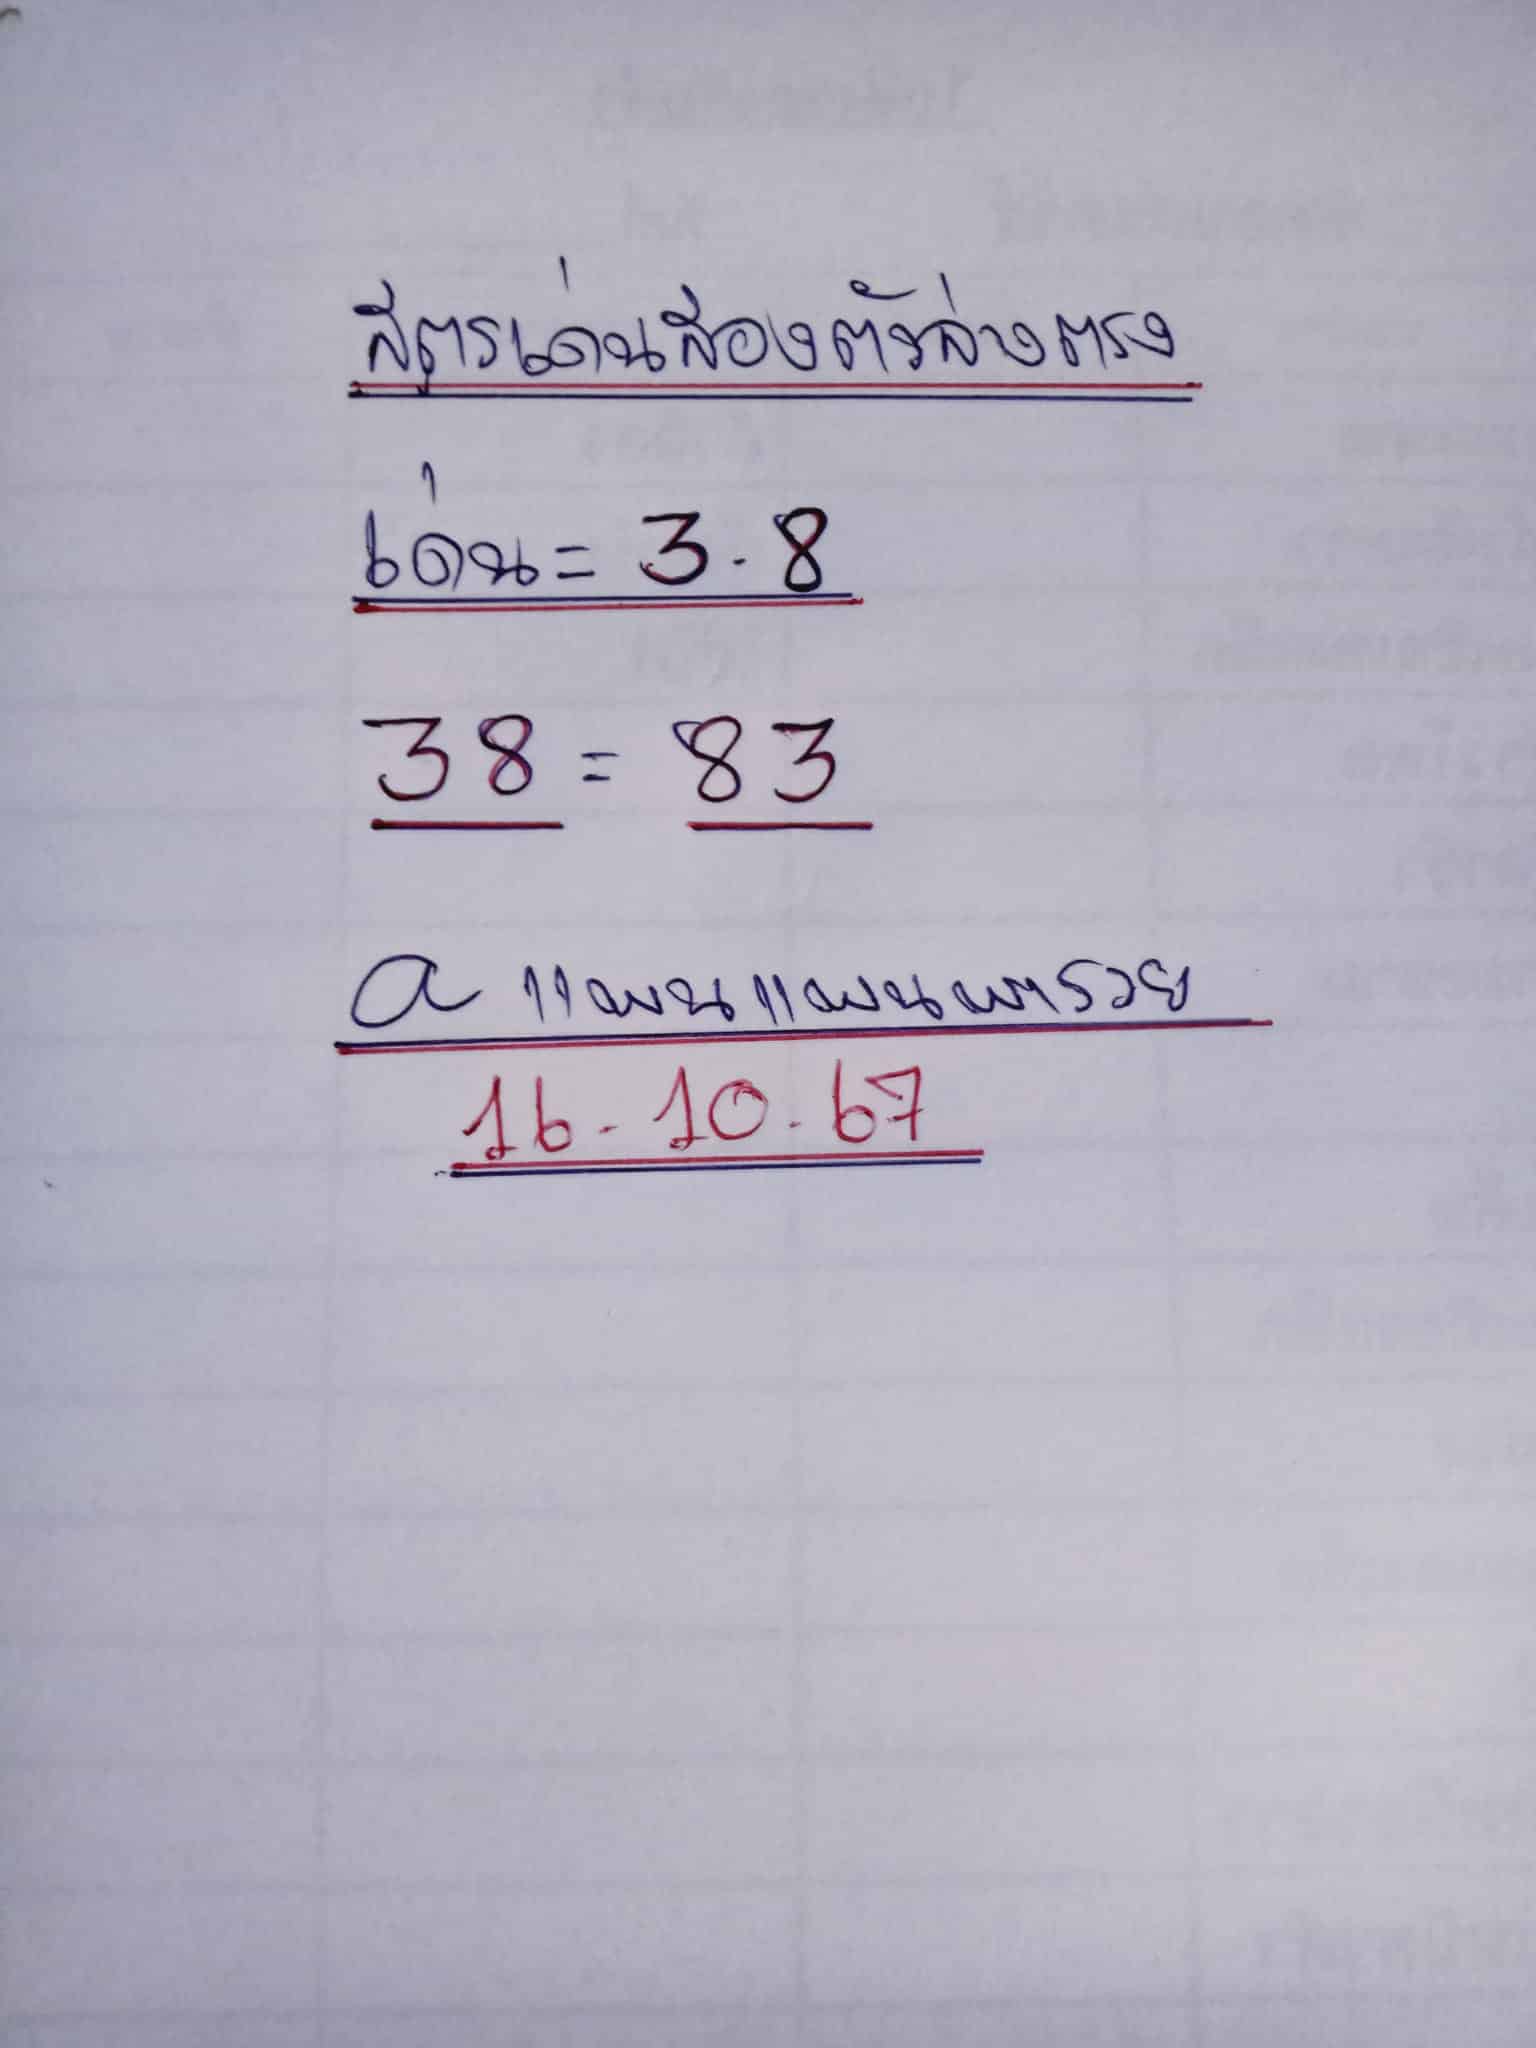 สูตรเด่นสองตัวล่างตรง
เด่น = 3.8
38 = 83
a แมนแมนพารวย
16.10.67